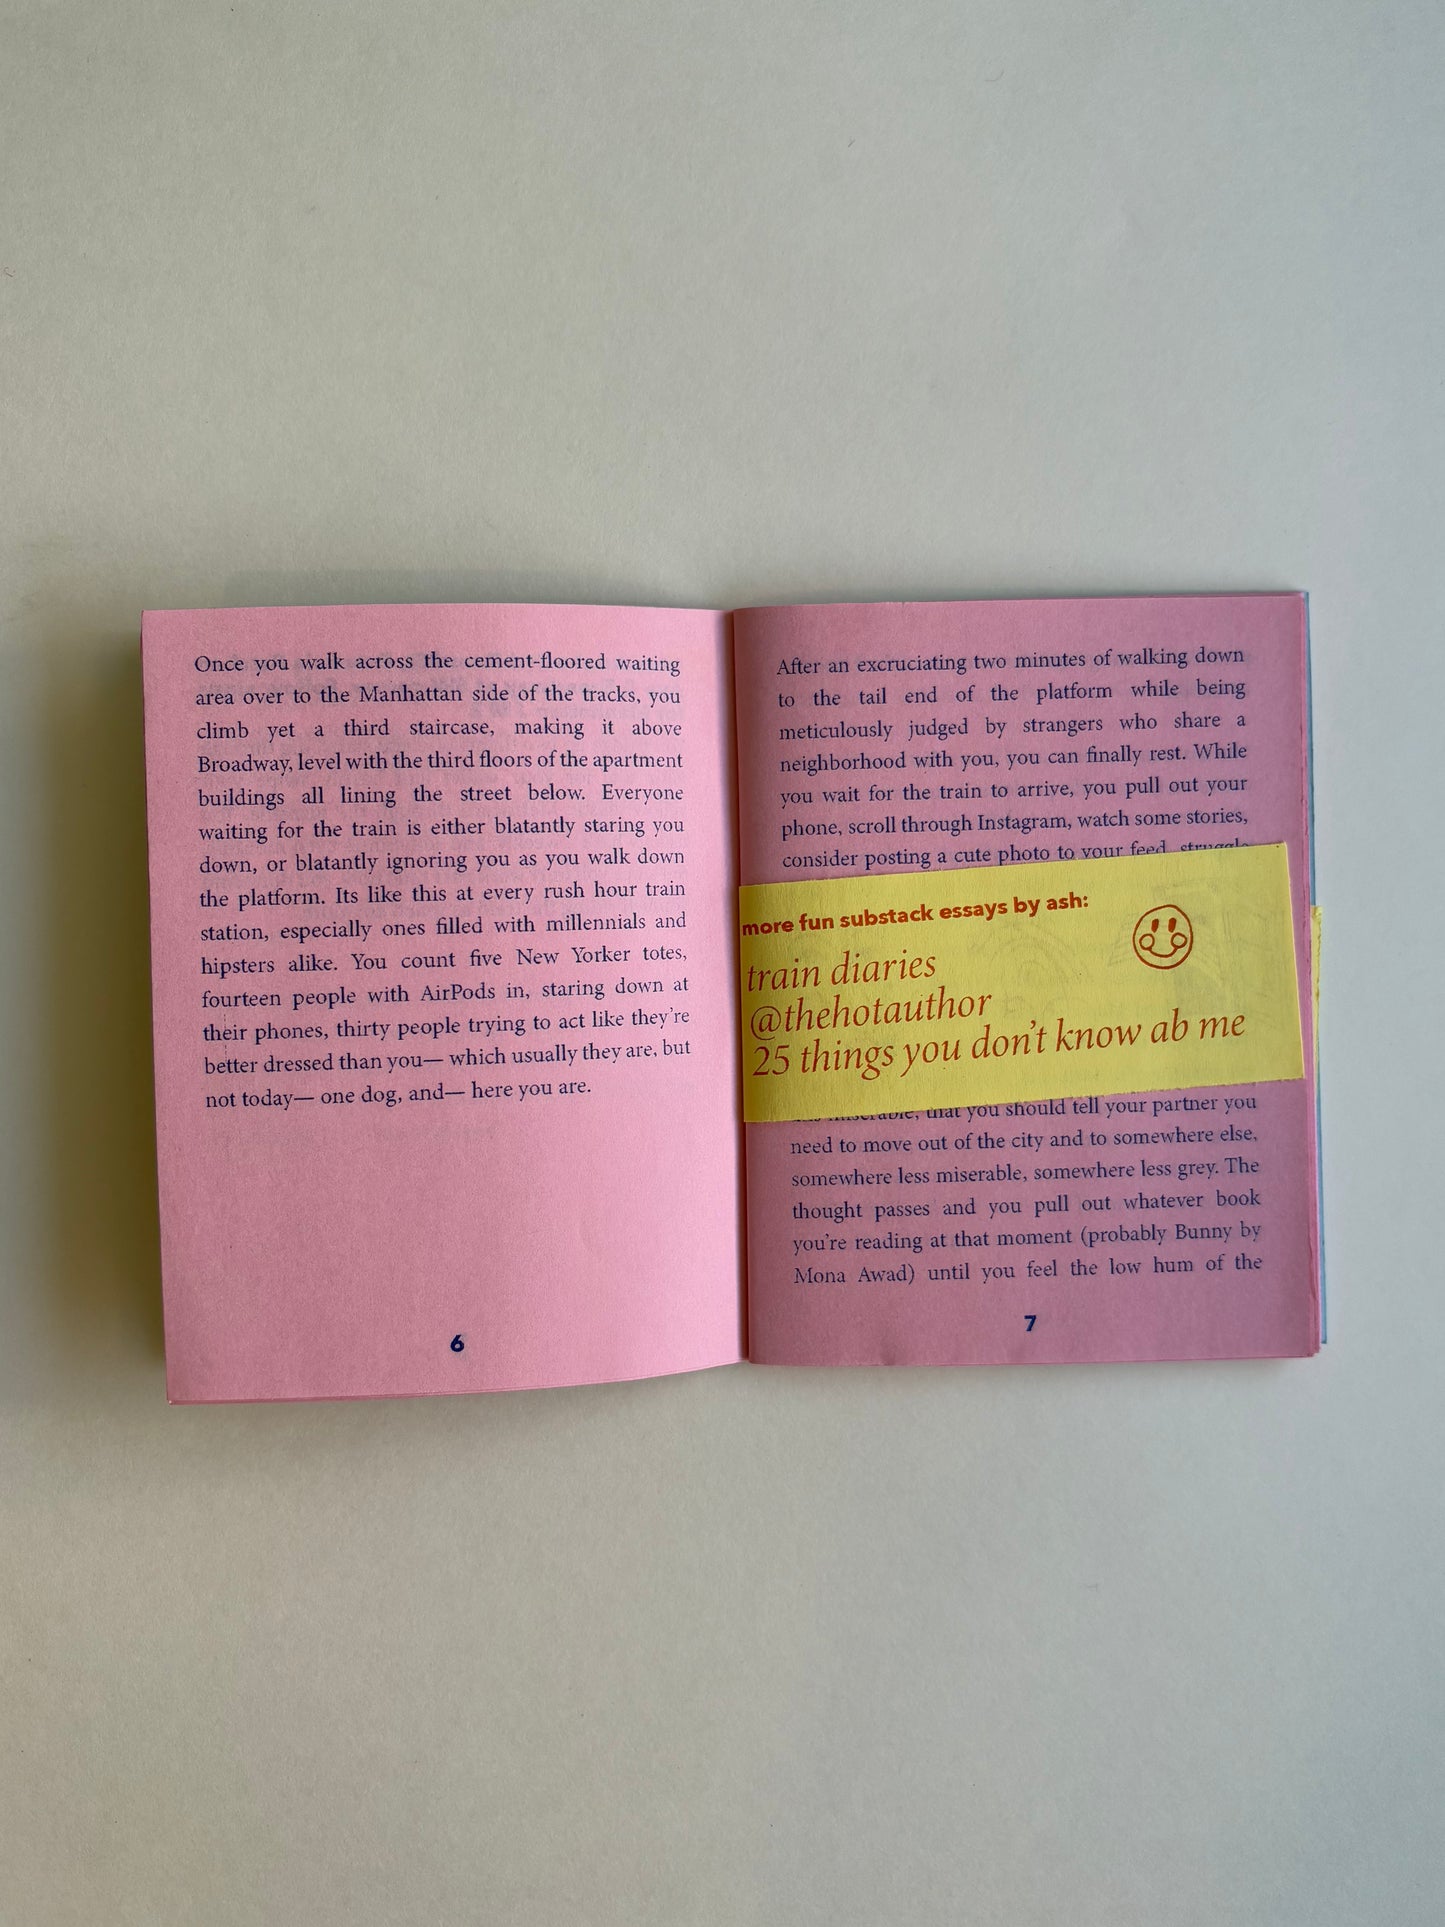 Once you walk across the cement-floored waiting
area over to the Manhattan side of the tracks, you
climb yet a third staircase, making it above
Broadway, level with the third floors of the apartment
buildings all lining the street below. Everyone
waiting for the train is either blatantly staring you
down, or blatantly ignoring you as you walk down
the platform. Its like this at every rush hour train
station, especially ones filled with millennials and
hipsters alike. You count five New Yorker totes,
fourteen people with AirPods in, staring down at
their phones, thirty people trying to act like they're
better dressed than you— which usually they are, but
not today— one dog, and— here you are.
6
After an excruciating two minutes of walking down
to the tail end of the platform while being
meticulously judged by strangers who share a
neighborhood with you, you can finally rest. While
you wait for the train to arrive, you pull out your
phone, scroll through Instagram, watch some stories,
consider posting a cute photo to your feed, struggle
more fun substack essays by ash:
train diaries
@thehotauthor
25 things you don't know ab me
miserable, that you should tell your partner you
need to move out of the city and to somewhere else,
somewhere less miserable, somewhere less grey. The
thought passes and you pull out whatever book
you're reading at that moment (probably Bunny by
Mona Awad) until you feel the low hum of the
7